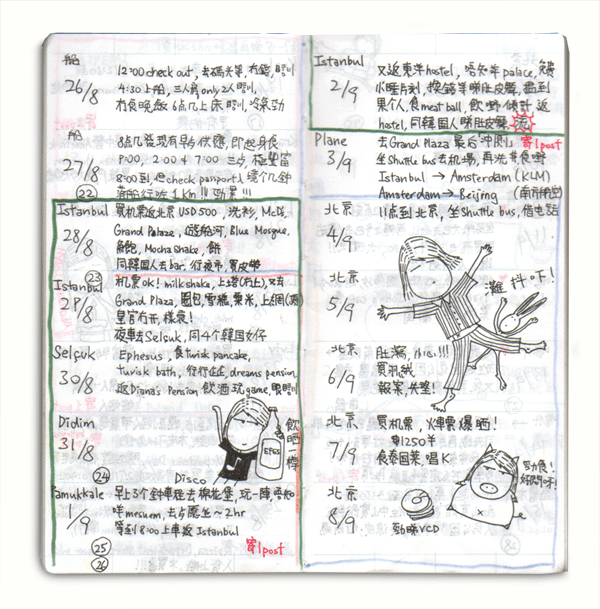 船
26/8
12:00 check out, 去碼头等, 冇錢, 瞓
4:30 上船, 三人房 only 2人, 瞓
冇食晚飯 6点几上床 瞓, 冷氣勁
船
27/8
8点几發現有早歺供應, 即起身食
9:00, 2:00 & 7:00 三歺, 極豐富
8:00到, 但check passport
(22)
Istanbul
28/8
買机票返北京 USD500, 洗衫, McD,
Grand Palaze, 遊船河, Blue Mosque,
魚飽, Mocha Shake, 餅
同韓国人去bar, 行夜市, 買皮帶
(23)
Istanbul
29/8
机票ok! milkshake, 上塔(冇上), 又去
Grand Plaza, 雪糕, 粟米, 上網
皇宮冇開, 樣衰!
夜車去Selsuk, 同4个韓国女仔
Selçuk
30/8
Ephesus, 食turisk pancake,
turisk bath, dreams pension
返Diana's Pension 飲酒玩game, 瞓
Didim
31/8
飲晒一樽
EFES
Disco
(24)
Pamukkale
1/9
早上3个鈡車程去棉花堡, 玩一陣, 唔知
咩 museum, 去歺廳坐~2hr
等到8:00上車返 Istanbul
寄1 post
(25)
(26)
Istanbul
2/9
又返東洋hostel, 唔知羊palace,
小睡片刻, 搵錯羊睇肚皮舞, 撞到
果个人, 食meat ball, 飲嘢傾計 返
hostel, 同韓国人睇肚皮舞,
Plane
3/9
去Grand Plaza 最后「冲刺」 寄1 post
坐Shuttle bus去机場, 再洗黃食嘢
Istanbul → Amsterdam (KLM)
Amsterdam → Beijing (南方航空)
北京
4/9
11点到北京, 坐Shuttle bus, 借电話
北京
5/9
灘抖吓!
北京
6/9
肚瀉, !!!
買羽絨
報案, 失整!
北京
7/9
買机票, 火車票爆晒!
$1250羊
食泰国菜, 唱K
北京
8/9
勁睇VCD
勁食!
好悶呀!